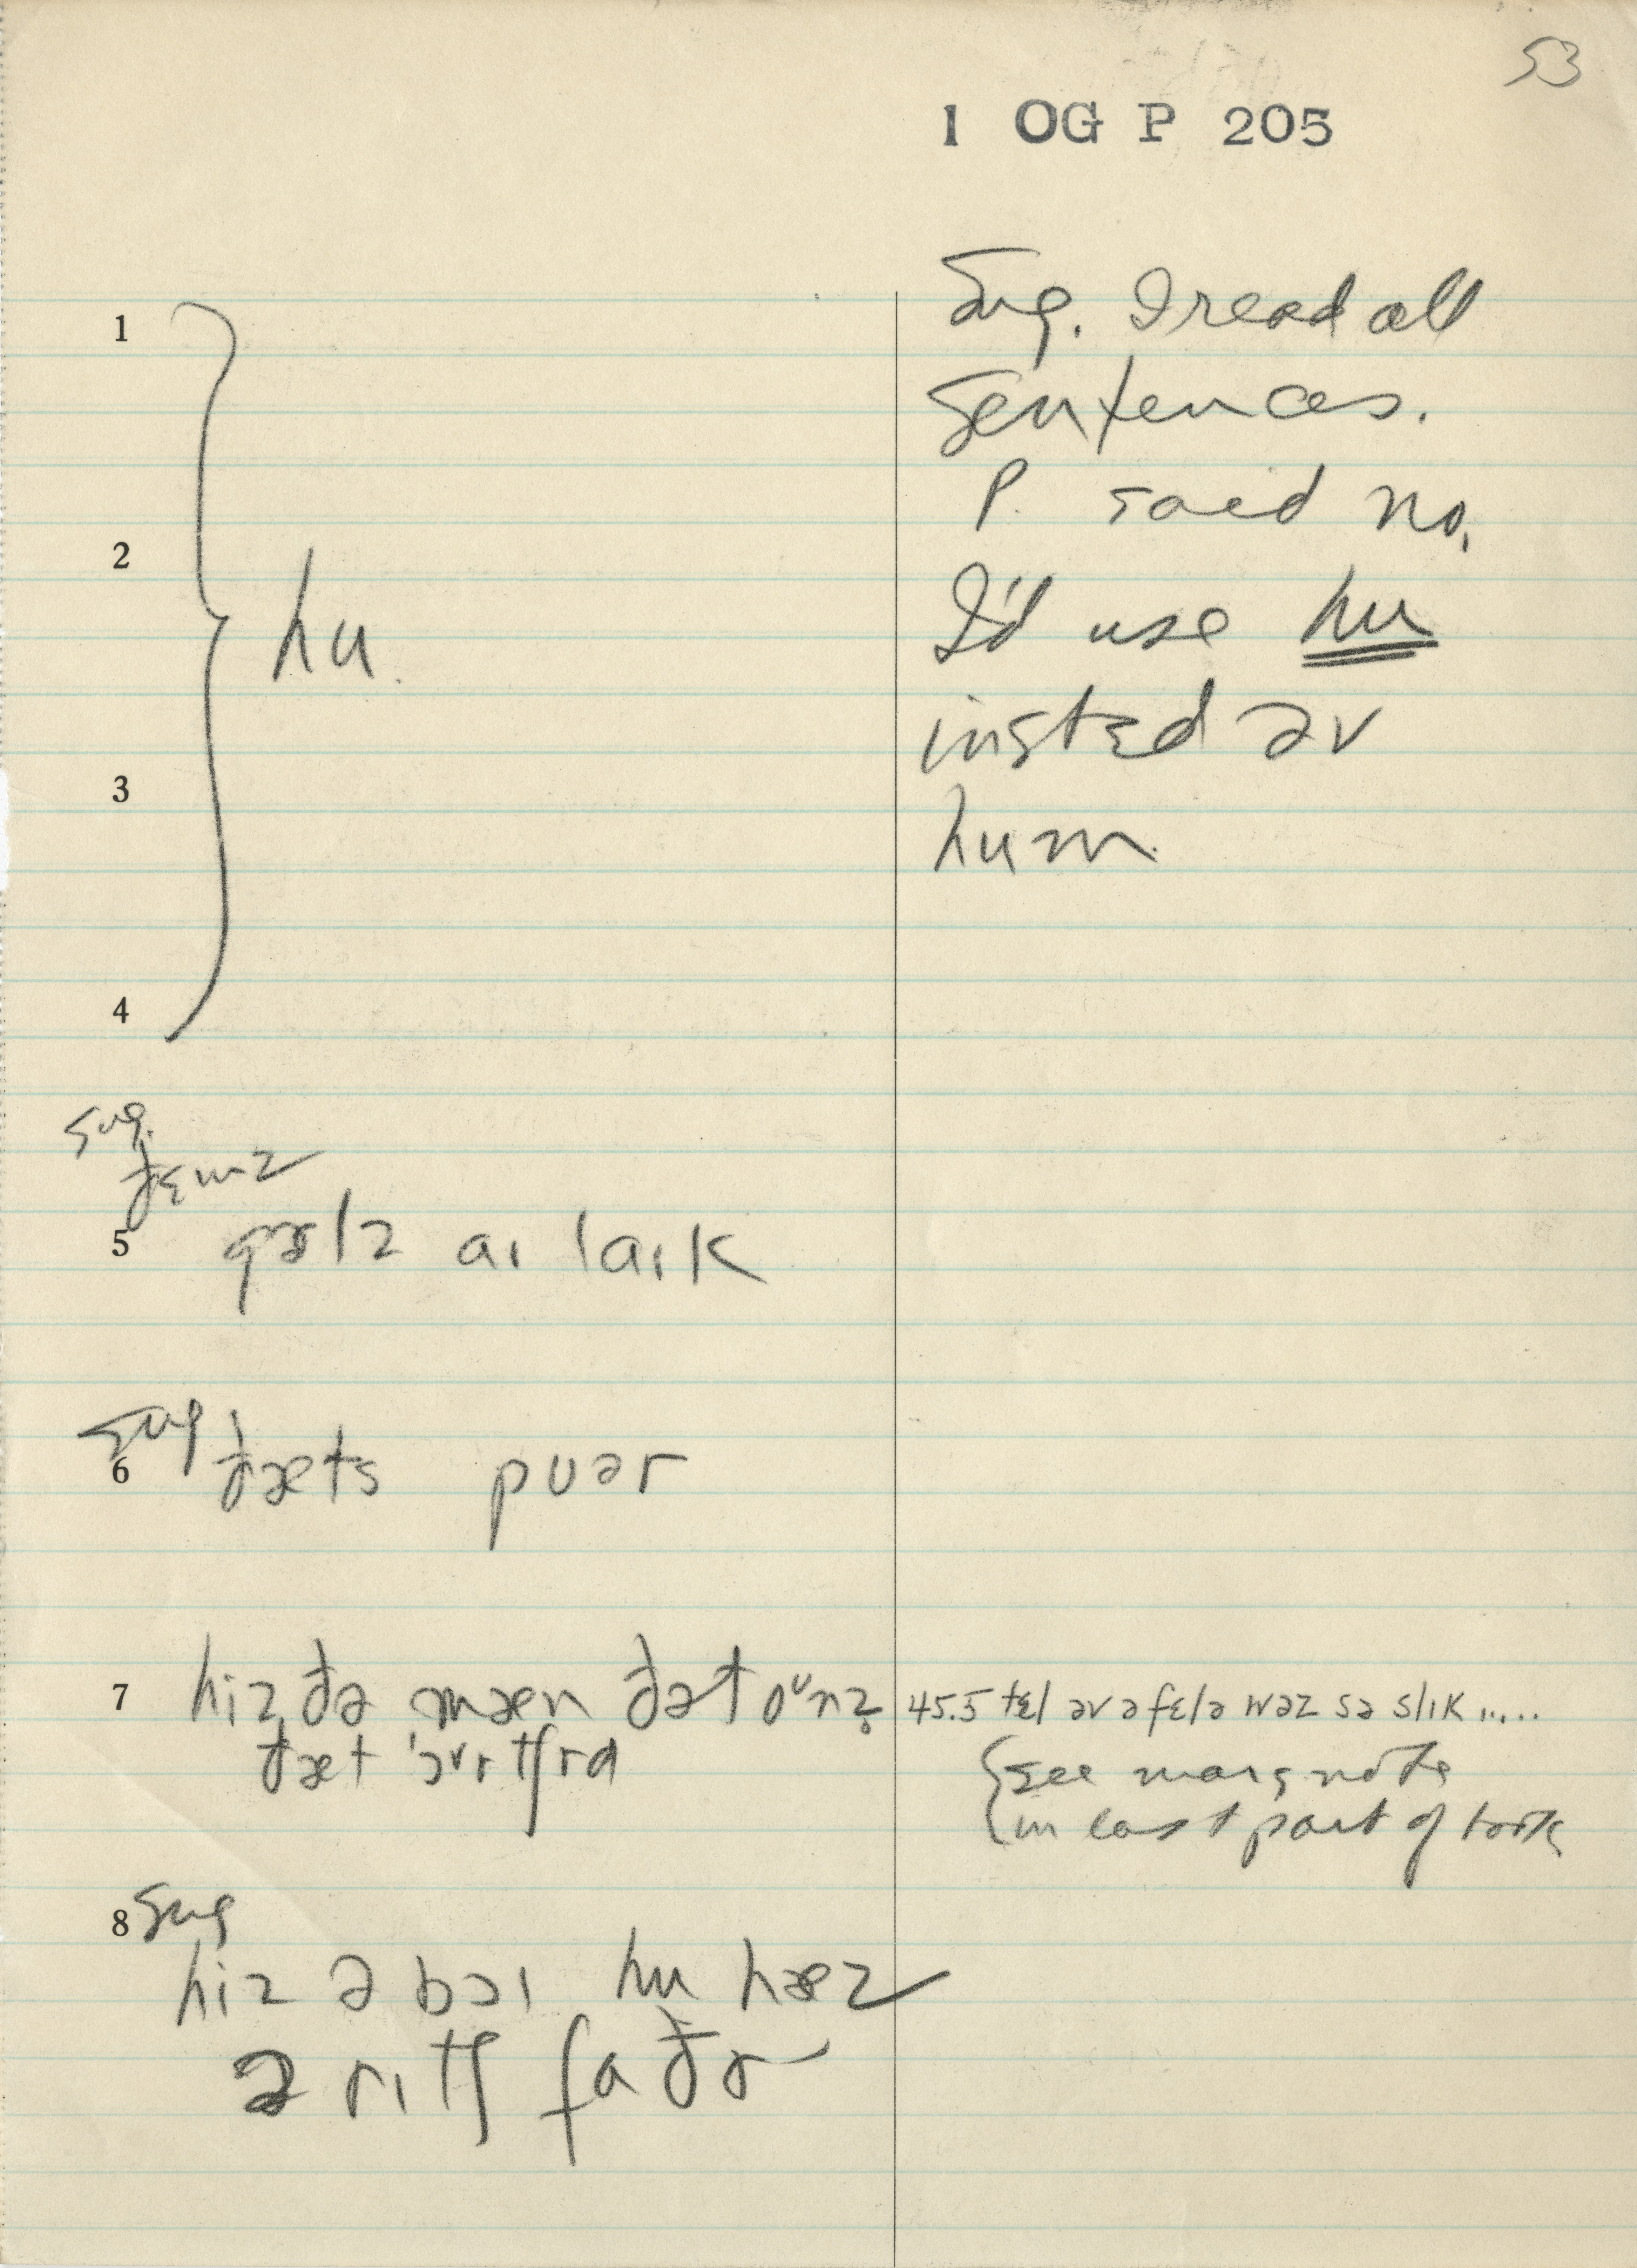 53
1 OG P 205
1
2
3
4
hu
Sug. I read all
sentences.
P. said no,
I'd use hu
instɛd əv
hum
sug.
ðɛmz
5 gɝlz aɪ laɪk
sug
6 ðæts pʊər
7 hiz ðə mæn ðət oᵘnz
ðæt
45.5 tɛl əv ə fɛlə wəz sə slɪk .....
see marg note
in last part of book
8 sug
hiz ə bɔɪ hu hæz
ə rɪtʃ faðɚ